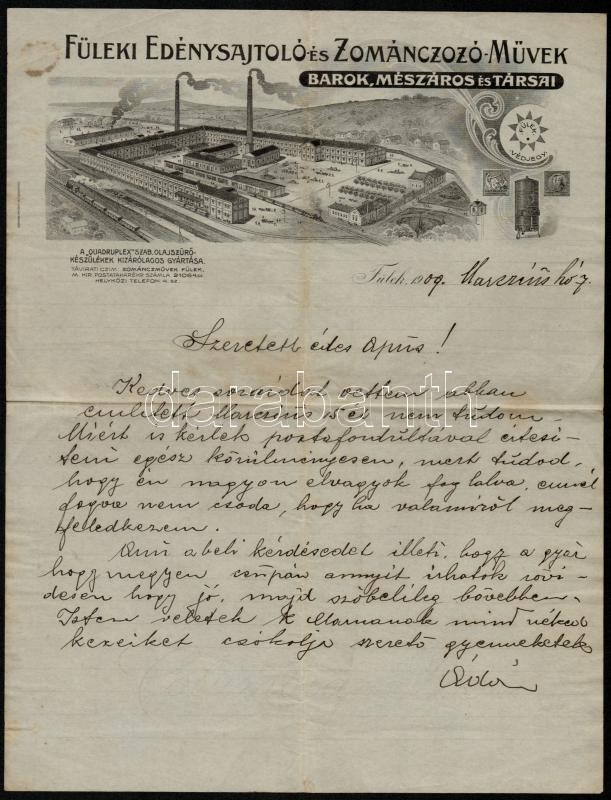 FÜLEKI EDÉNYSAJTOLÓ-ÉS ZOMÁNCZOZÓ-MŰVEK
BAROK, MÉSZÁROS ÉS TÁRSAI
FÜLEK
VÉDJEGY.
A „QUADRUPLEX" SZAB. OLAJSZŰRŐ-
KÉSZÜLÉKEK KIZÁRÓLAGOS GYÁRTÁSA.
TÁVIRATI CZIM: ZOMÁNCZMŰVEK FÜLEK.
M. KIR. POSTATAKARÉKP. SZÁMLA
HELYKÖZI TELEFON 4. SZ.
Fülek, 1909. Marczius hó 7.
Szeretett édes Apus!
Kedves soraidat vettem abban
emlitett Marczius 15 ét nem tudom
Miért is kérlek postafordultával értesi-
teni egész körülményesen, mert tudod,
hogy én nagyon elvagyok foglalva, ennél
fogva nem csoda, hogy ha valamiről meg-
feledkezem.
Ami abeli kérdésedet illeti, hogy a gyár
hogy megyen, csupán annyit irhatok rövi-
desen hogy jó, majd szóbelileg bővebben.
Isten veletek Mamanak mind néked
kezeiket csókolja szerető gyermeketek
darabanth
www.darabanth.com